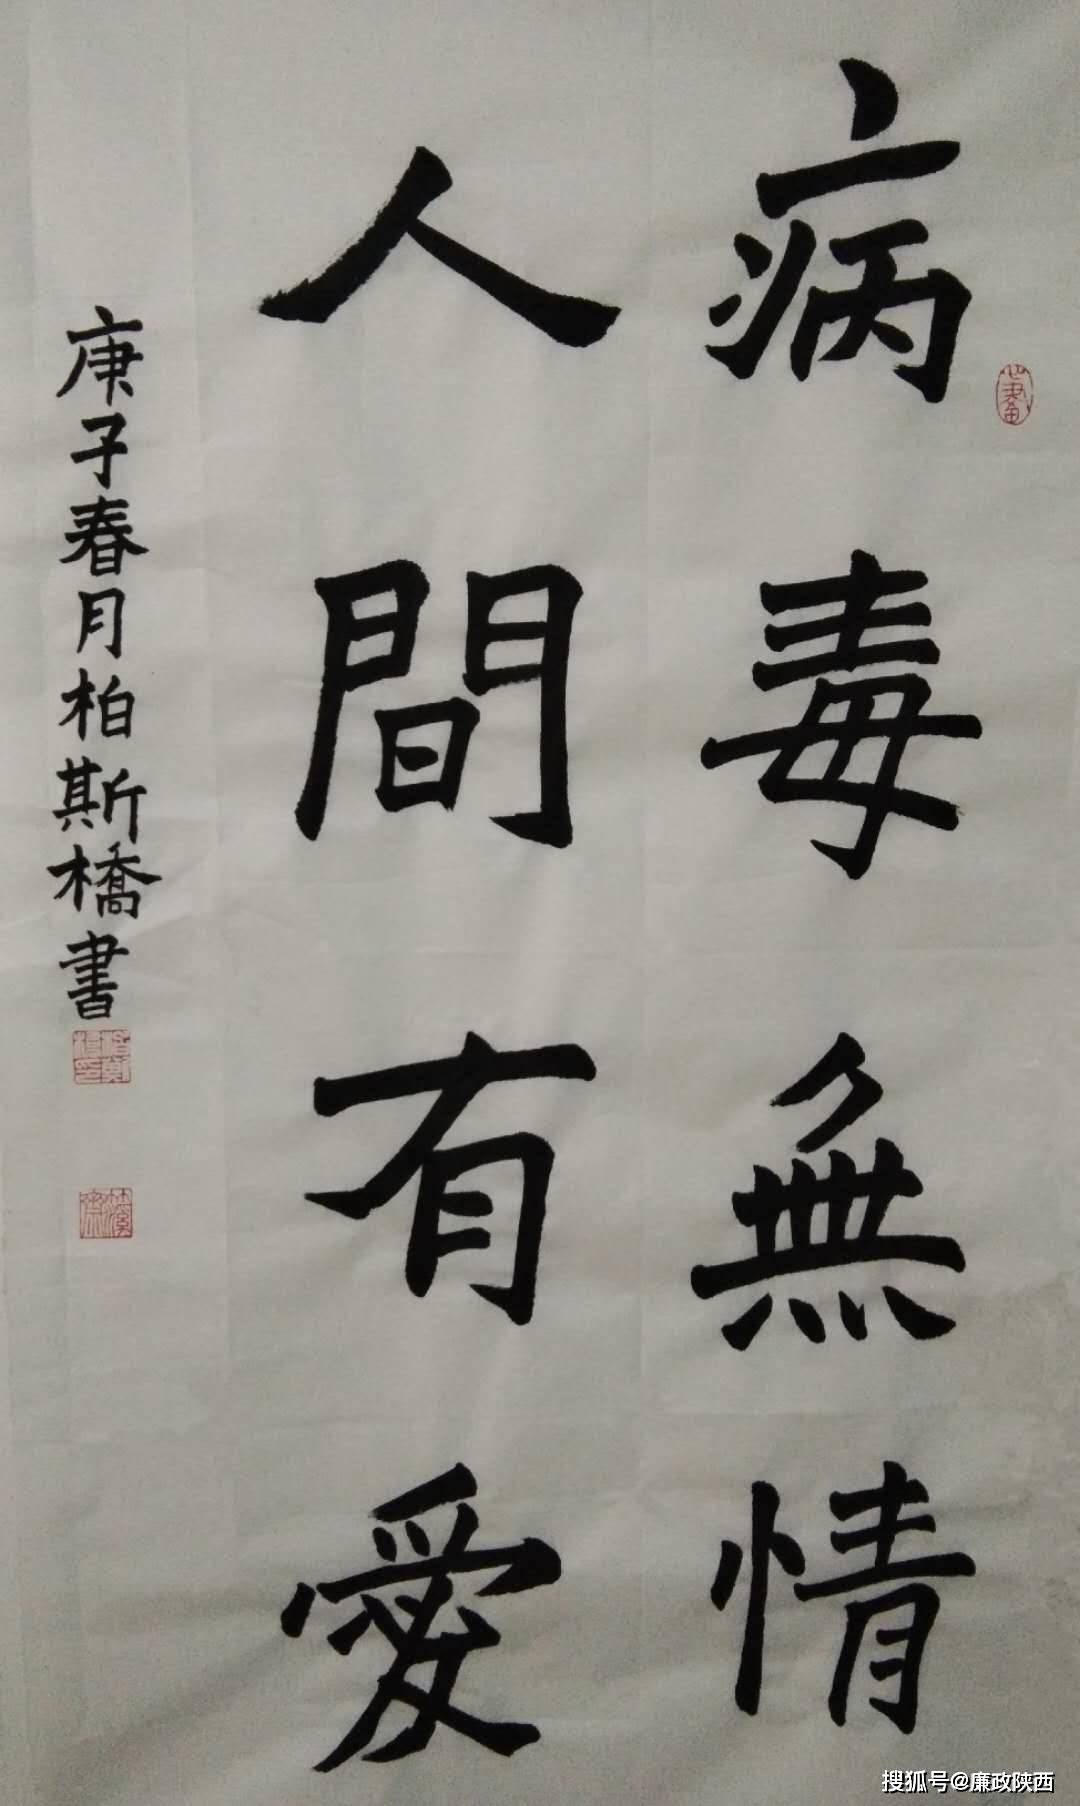 病毒無情
人間有愛
庚子春月柏斯橋書
搜狐号@廉政陕西